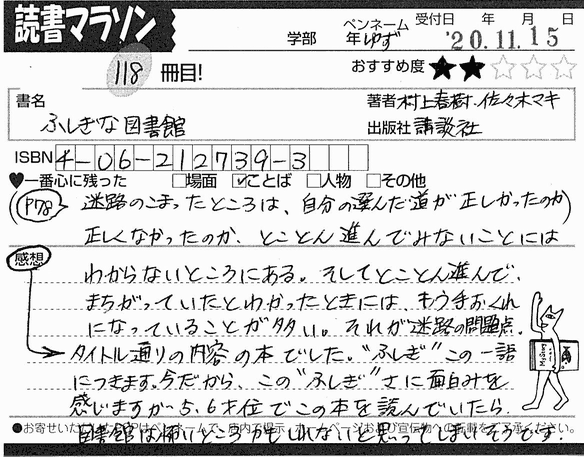 読書マラソン
学部 年
ペンネーム ゆず
受付日 年 月 日
'20.11.15
118 冊目!
おすすめ度 ★★☆☆☆
書名
ふしぎな図書館
著者 村上春樹.佐々木マキ
出版社 講談社
ISBN 4-06-212739-3
♥一番心に残った □場面 ☑ことば □人物 □その他
P78 迷路のこまったところは、自分の選んだ道が正しかったのか
正しくなかったのか、とことん進んでみないことには
わからないところにある。そしてとことん進んで、
まちがっていたとわかったときには、もう手おくれ
になっていることが多い。それが迷路の問題点.
感想
タイトル通りの内容の本でした。"ふしぎ"この一語
につきます.今だから、この"ふしぎ"さに面白みを
感じますが、5、6才位でこの本を読んでいたら、
図書館は怖いところかもしれないと思ってしまいそうです.